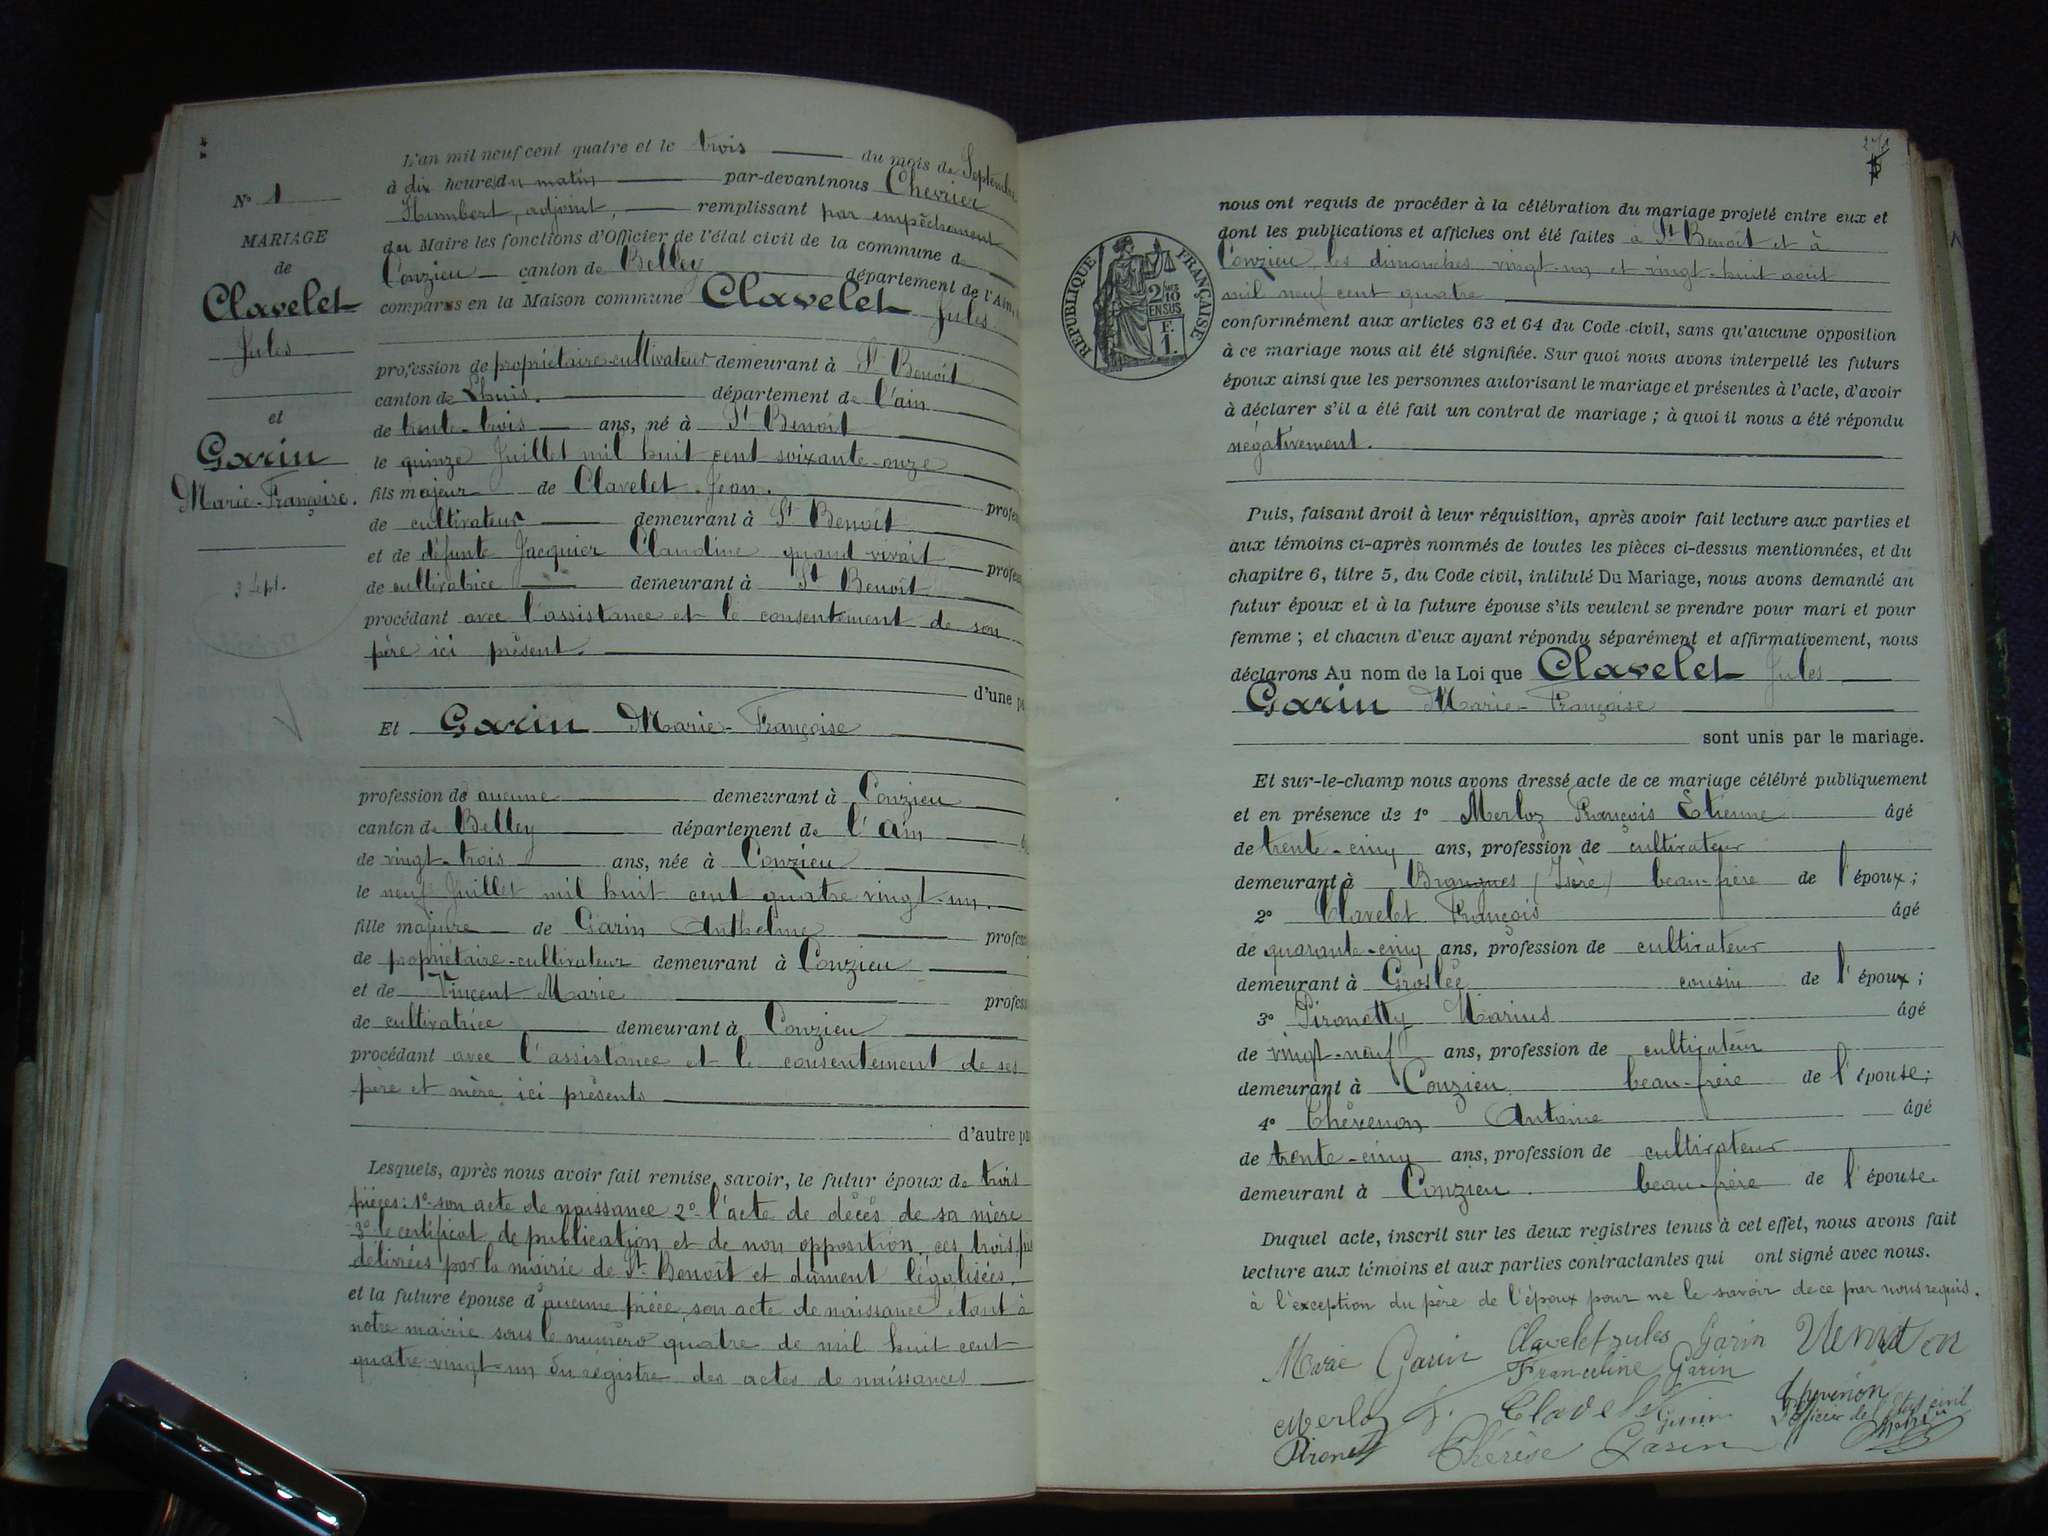 N° 1
MARIAGE
de
Clavelet
Jules
et
Garin
Marie-Françoise.
3 Sept.
L'an mil neuf cent quatre et le trois du mois de Septembre
à dix heures du matin par-devant nous Chevrier
Humbert, adjoint, remplissant par empêchement
du Maire les fonctions d'Officier de l'état civil de la commune de
Conzieu canton de Belley département de l'Ain,
comparus en la Maison commune Clavelet Jules
profession de propriétaire-cultivateur demeurant à St Benoît
canton de Lhuis. département de l'ain
de trente-trois ans, né à St Benoît
le quinze Juillet mil huit cent soixante-onze
fils majeur de Clavelet Jean. profes
de cultivateur demeurant à St Benoît
et de défunte Jacquier Claudine quand vivait profess
de cultivatrice demeurant à St Benoît
procédant avec l'assistance et le consentement de son
père ici présent.
d'une pa
Et Garin Marie-Françoise
profession de aucune demeurant à Conzieu
canton de Belley département de l'ain
de vingt-trois ans, née à Conzieu
le neuf Juillet mil huit cent quatre vingt-un.
fille majeure de Garin Anthelme profess
de propriétaire-cultivateur demeurant à Conzieu
et de Vincent Marie profess
de cultivatrice demeurant à Conzieu
procédant avec l'assistance et le consentement de ses
père et mère ici présents
d'autre pa
Lesquels, après nous avoir fait remise, savoir, le futur époux de trois
pièces: 1° son acte de naissance 2° l'acte de décès de sa mère
3° le certificat de publication et de non opposition, ces trois
délivrées par la mairie de St Benoît et dûment légalisées.
et la future épouse d'aucune pièce, son acte de naissance étant à
notre mairie sous le numéro quatre de mil huit cent
quatre-vingt-un du registre des actes de naissances
nous ont requis de procéder à la célébration du mariage projeté entre eux et
dont les publications et affiches ont été faites à St Benoît et à
Conzieu, les dimanches vingt-un et vingt-huit août
mil neuf cent quatre
conformément aux articles 63 et 64 du Code civil, sans qu'aucune opposition
à ce mariage nous ait été signifiée. Sur quoi nous avons interpellé les futurs
époux ainsi que les personnes autorisant le mariage et présentes à l'acte, d'avoir
à déclarer s'il a été fait un contrat de mariage; à quoi il nous a été répondu
négativement.
RÉPUBLIQUE FRANÇAISE
2/10
EN SUS
F.
1.
Puis, faisant droit à leur réquisition, après avoir fait lecture aux parties et
aux témoins ci-après nommés de toutes les pièces ci-dessus mentionnées, et du
chapitre 6, titre 5, du Code civil, intitulé Du Mariage, nous avons demandé au
futur époux et à la future épouse s'ils veulent se prendre pour mari et pour
femme; et chacun d'eux ayant répondu séparément et affirmativement, nous
déclarons Au nom de la Loi que Clavelet Jules
Garin Marie-Françoise
sont unis par le mariage.
Et sur-le-champ nous avons dressé acte de ce mariage célébré publiquement
et en présence de 1° Merloz François Etienne âgé
de trente-cinq ans, profession de cultivateur
demeurant à Brangues (Isère) beau-frère de l'époux;
2° Clavelet François âgé
de quarante-cinq ans, profession de cultivateur
demeurant à Groslée cousin de l'époux;
3° Pironetty Marius âgé
de vingt-neuf ans, profession de cultivateur
demeurant à Conzieu beau-frère de l'épouse;
4° Thévenon Antoine âgé
de trente-cinq ans, profession de cultivateur
demeurant à Conzieu. beau-frère de l'épouse.
Duquel acte, inscrit sur les deux registres tenus à cet effet, nous avons fait
lecture aux témoins et aux parties contractantes qui ont signé avec nous.
à l'exception du père de l'époux pour ne le savoir de ce par nous requis.
Marie Garin Clavelet Jules Garin
Franceline Garin
Merloz F. Clavelet Garin Thevenon
L'officier de l'état civil
Thérèse Garin